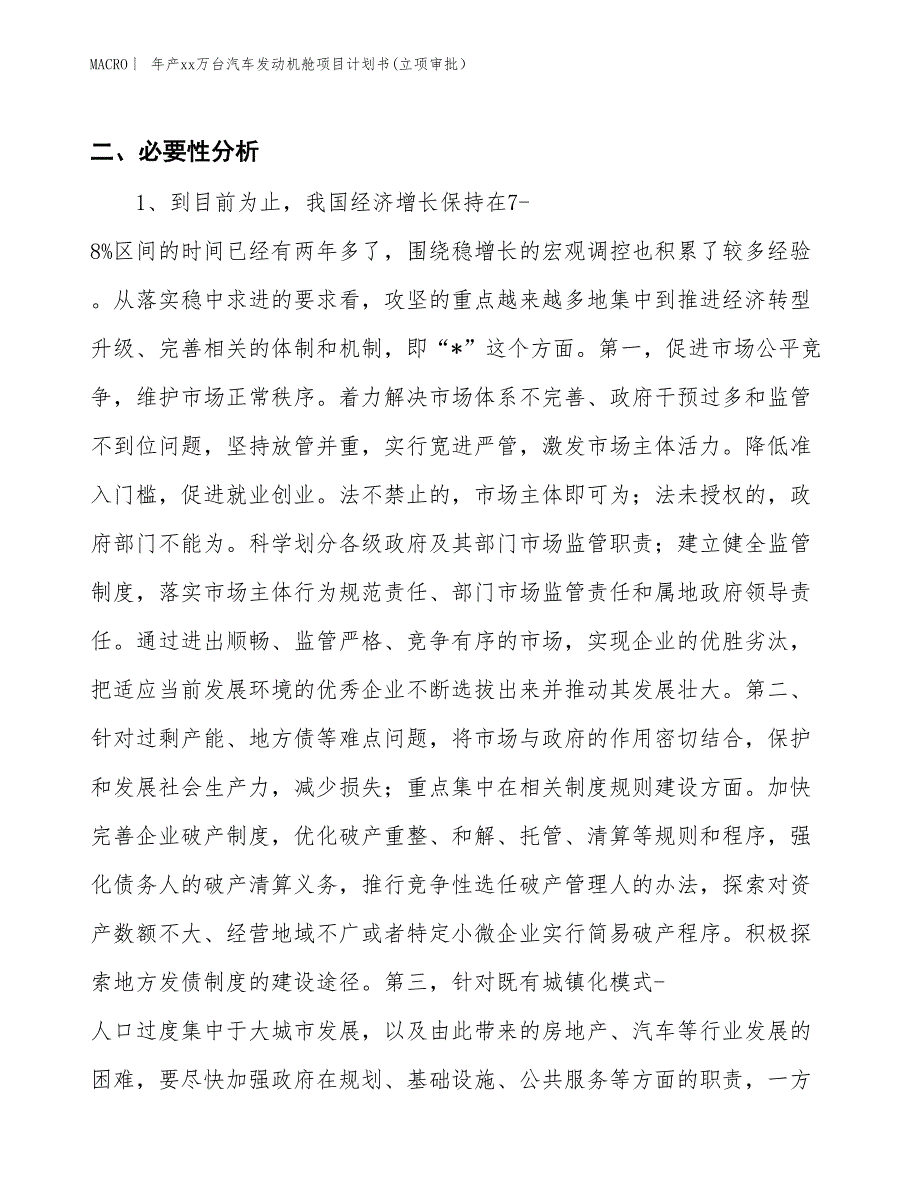 MACRO| 年产xx万台汽车发动机舱项目计划书(立项审批）
二、必要性分析
1、到目前为止，我国经济增长保持在7-
8%区间的时间已经有两年多了，围绕稳增长的宏观调控也积累了较多经验
。从落实稳中求进的要求看，攻坚的重点越来越多地集中到推进经济转型
升级、完善相关的体制和机制，即“*”这个方面。第一，促进市场公平竞
争，维护市场正常秩序。着力解决市场体系不完善、政府干预过多和监管
不到位问题，坚持放管并重，实行宽进严管，激发市场主体活力。降低准
入门槛，促进就业创业。法不禁止的，市场主体即可为；法未授权的，政
府部门不能为。科学划分各级政府及其部门市场监管职责；建立健全监管
制度，落实市场主体行为规范责任、部门市场监管责任和属地政府领导责
任。通过进出顺畅、监管严格、竞争有序的市场，实现企业的优胜劣汰，
把适应当前发展环境的优秀企业不断选拔出来并推动其发展壮大。第二、
针对过剩产能、地方债等难点问题，将市场与政府的作用密切结合，保护
和发展社会生产力，减少损失；重点集中在相关制度规则建设方面。加快
完善企业破产制度，优化破产重整、和解、托管、清算等规则和程序，强
化债务人的破产清算义务，推行竞争性选任破产管理人的办法，探索对资
产数额不大、经营地域不广或者特定小微企业实行简易破产程序。积极探
索地方发债制度的建设途径。第三，针对既有城镇化模式-
人口过度集中于大城市发展，以及由此带来的房地产、汽车等行业发展的
困难，要尽快加强政府在规划、基础设施、公共服务等方面的职责，一方